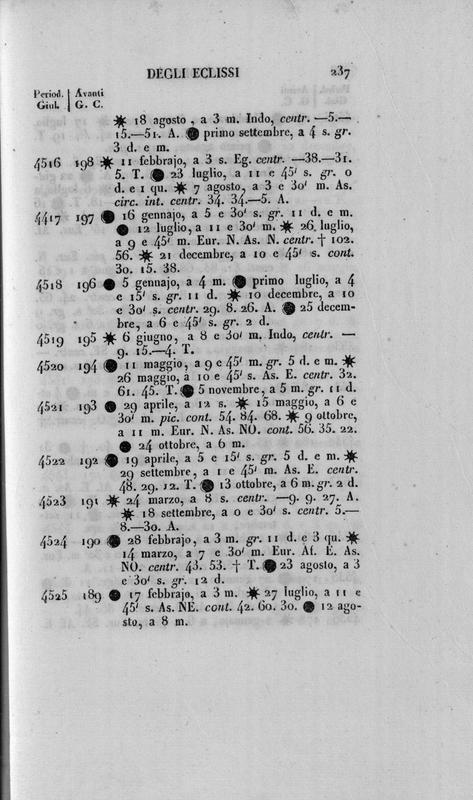 DEGLI ECLISSI 237
Period. | Avanti
Giul. | G. C.
✷ 18 agosto, a 3 m. Indo, centr. —5.—
15.—51. A. ● primo settembre, a 4 s. gr.
3 d. e m.
4516 198 ✷ 11 febbrajo, a 3 s. Eg. centr. —38.—31.
5. T. ● 23 luglio, a 11 e 45' s. gr. 0
d. e 1 qu. ✷ 7 agosto, a 3 e 30' m. As.
circ. int. centr. 34. 34.—5. A.
4417 197 ● 16 gennajo, a 5 e 30' s. gr. 11 d. e m.
● 12 luglio, a 11 e 30' m. ✷ 26 luglio,
a 9 e 45' m. Eur. N. As. N. centr. † 102.
56. ✷ 21 decembre, a 10 e 45' s. cont.
30. 15. 38.
4518 196 ● 5 gennajo, a 4 m. ● primo luglio, a 4
e 15' s. gr. 11 d. ✷ 10 decembre, a 10
e 30' s. centr. 29. 8. 26. A. ● 25 decem-
bre, a 6 e 45' s. gr. 2 d.
4519 195 ✷ 6 giugno, a 8 e 30' m. Indo, centr. —
9. 15.—4. T.
4520 194 ● 11 maggio, a 9 e 45' m. gr. 5 d. e m. ✷
26 maggio, a 10 e 45' s. As. E. centr. 32.
61. 45. T. ● 5 novembre, a 5 m. gr. 11 d.
4521 193 ● 29 aprile, a 12 s. ✷ 15 maggio, a 6 e
30' m. pic. cont. 54. 84. 68. ✷ 9 ottobre,
a 11 m. Eur. N. As. NO. cont. 56. 35. 22.
● 24 ottobre, a 6 m.
4522 192 ● 19 aprile, a 5 e 15' s. gr. 5 d. e m. ✷
29 settembre, a 1 e 45' m. As. E. centr.
48. 29. 12. T. ● 13 ottobre, a 6 m. gr. 2 d.
4523 191 ✷ 24 marzo, a 8 s. centr. —9. 9. 27. A.
✷ 18 settembre, a 0 e 30' s. centr. 5.—
8.—30. A.
4524 190 ● 28 febbrajo, a 3 m. gr. 11 d. e 3 qu. ✷
14 marzo, a 7 e 30' m. Eur. Af. E. As.
NO. centr. 43. 53. † T. ● 23 agosto, a 3
e 30' s. gr. 12 d.
4525 189 ● 17 febbrajo, a 3 m. ✷ 27 luglio, a 11 e
45' s. As. NE. cont. 42. 60. 30. ● 12 ago-
sto, a 8 m.